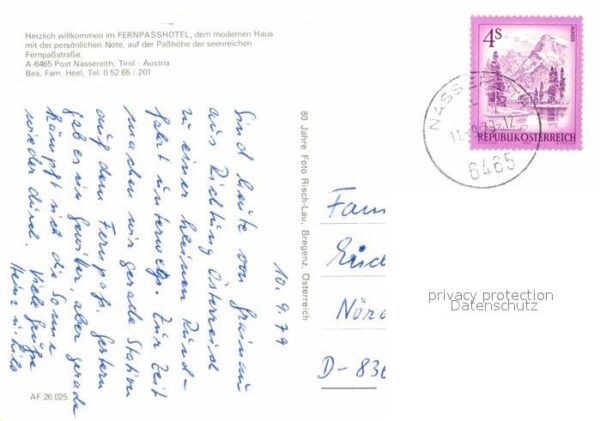 Herzlich willkommen im FERNPASSHOTEL, dem modernen Haus
mit der persönlichen Note, auf der Paßhöhe der seenreichen
Fernpaßstraße.
A-6465 Post Nassereith, Tirol - Austria
Bes. Fam. Heel, Tel. 0 52 65 / 201
10.9.79
Sind heute von Grainau
aus Richtung Österreich
zu einer kleinen Rund-
fahrt unterwegs. Zur Zeit
machen wir gerade Station
auf dem Fernpaß. Gestern
gab es ein Gewitter, aber gerade
kämpft sich die Sonne
wieder durch. Viele Grüße
Heinz u. Hilo
AF 26.025
80 Jahre Foto Risch-Lau, Bregenz, Österreich
4S
REPUBLIK ÖSTERREICH
NASSE
11.-9.79-12
6465
Fam
Nörd
D-836
privacy protection
Datenschutz